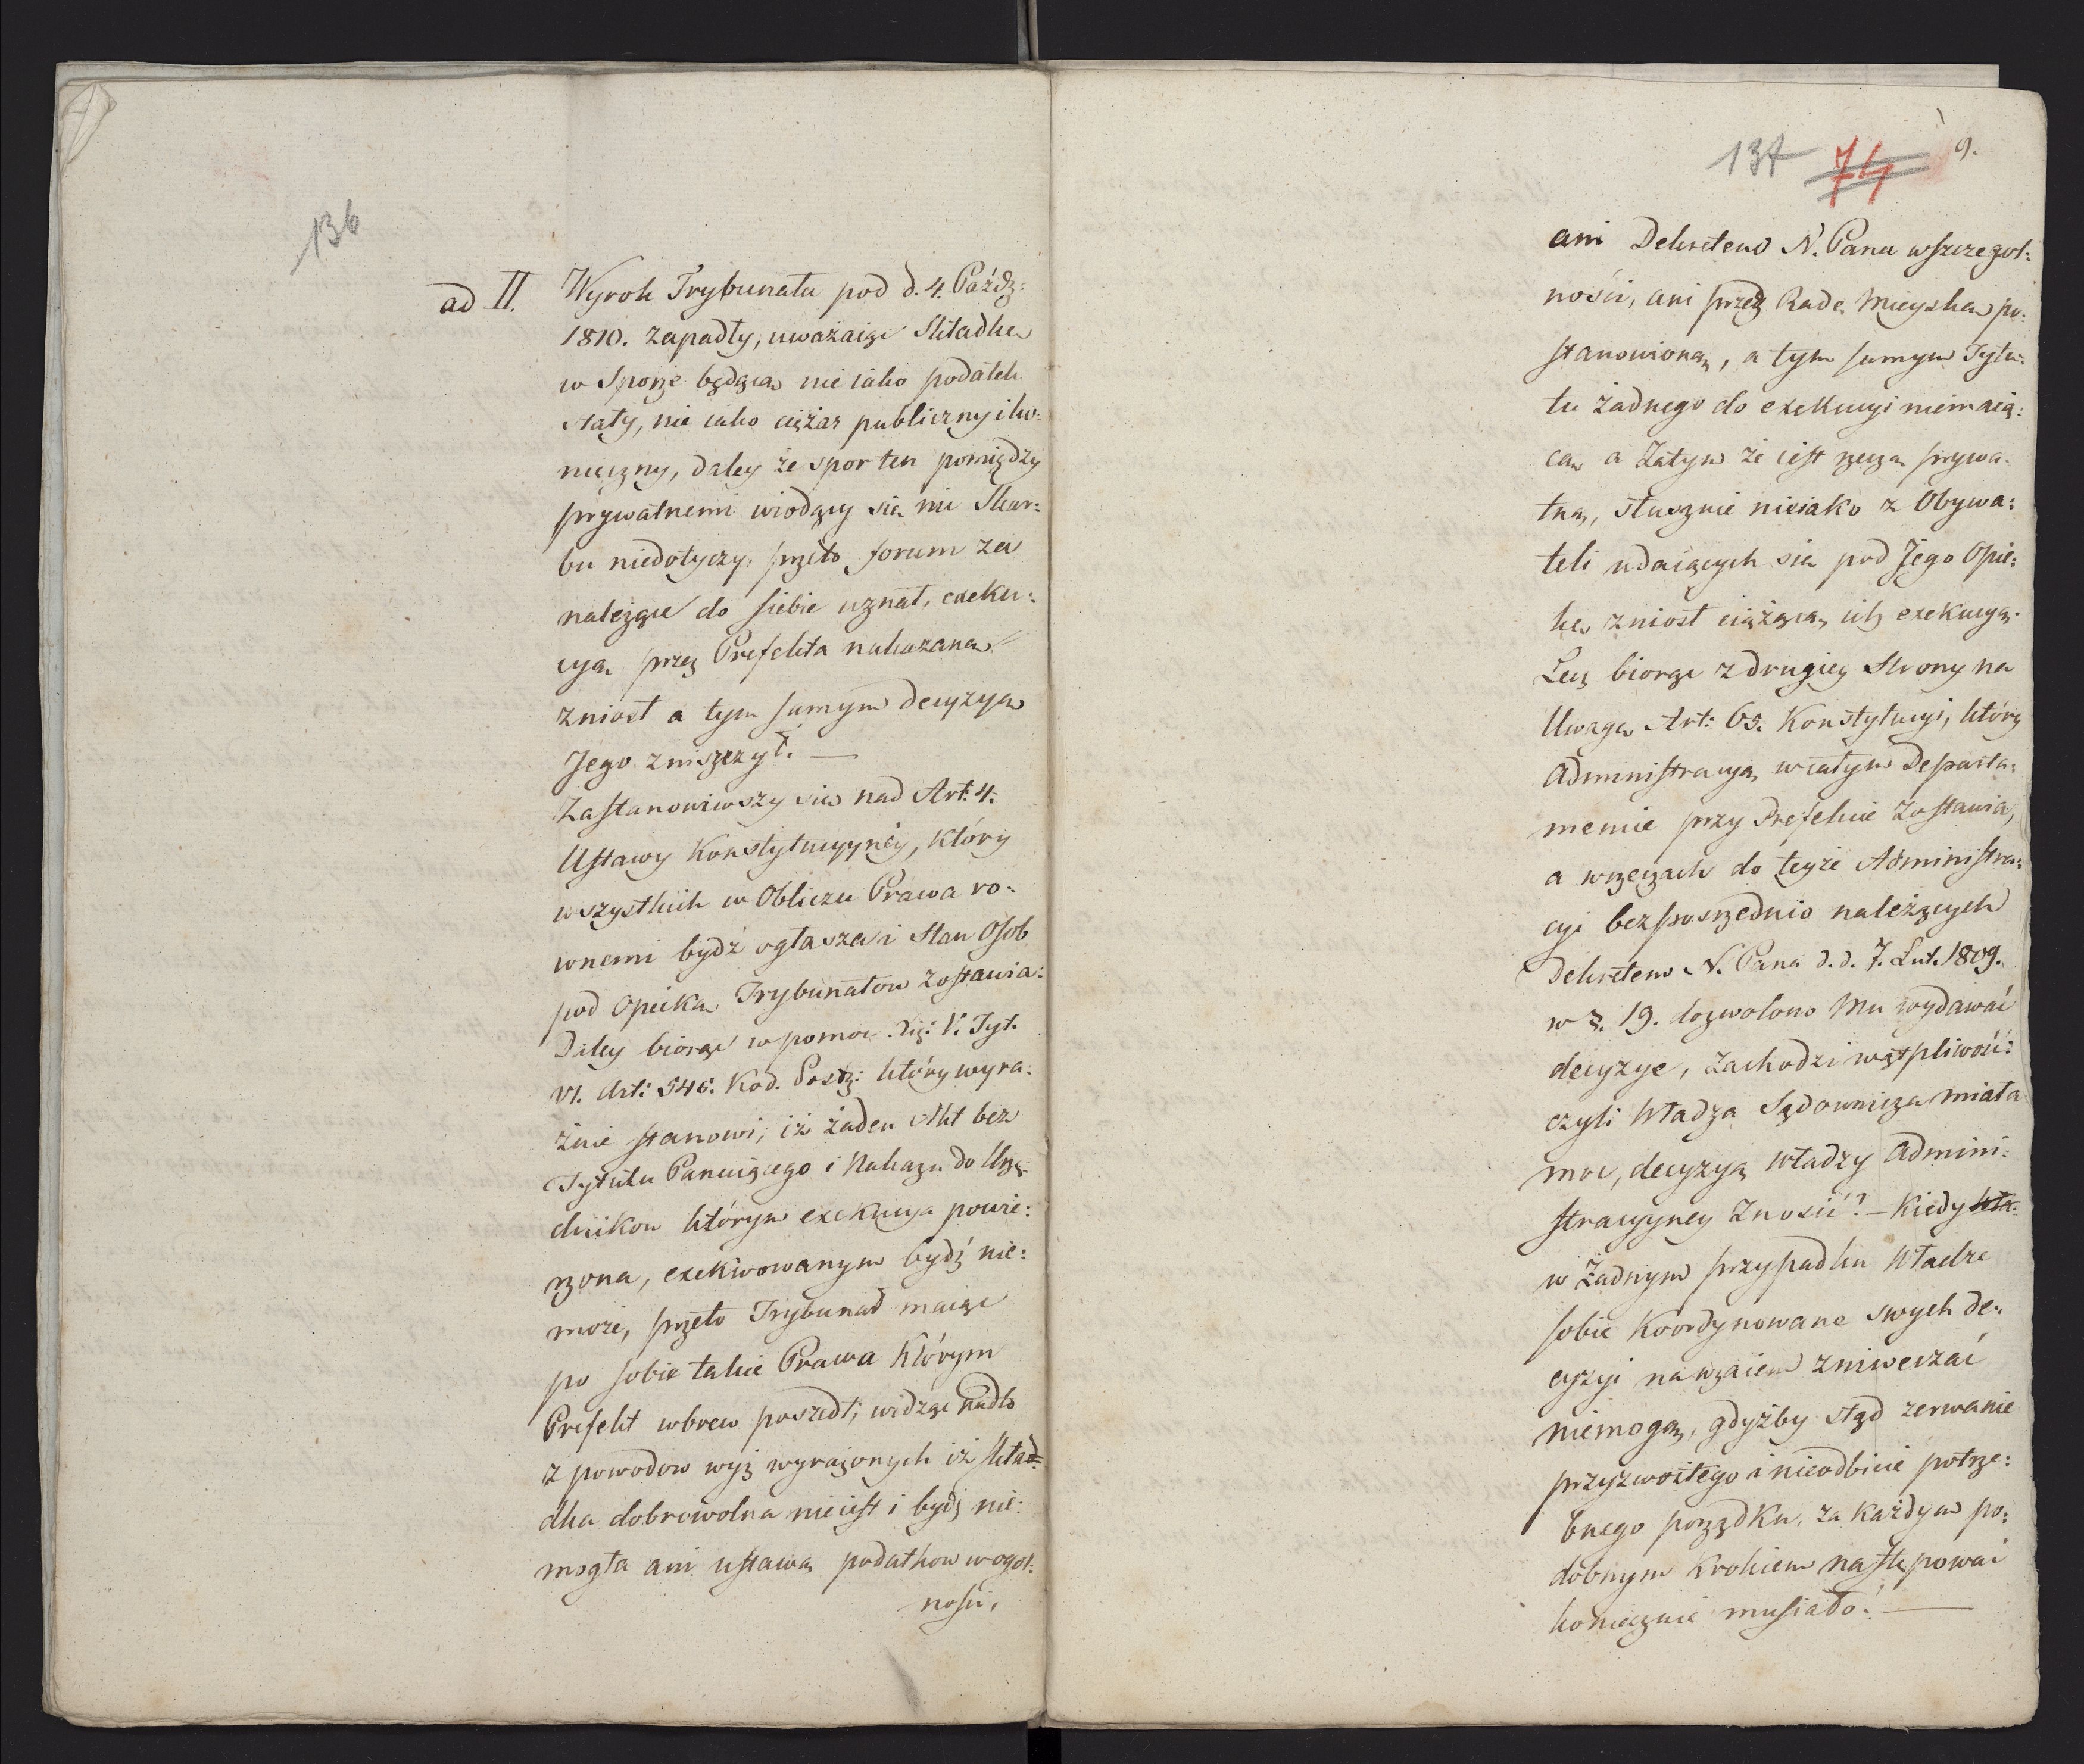 136
ad II. Wyrok Trybunału pod d. 4. Paźdz:
1810. zapadły, uważaiąc Składkę
w Sporze będącą nie iako podatek
stały, nie iako ciężar publiczny i ko-
nieczny, daley że spor ten pomiędzy
prywatnemi wiodący się nie Skar:
bu niedotyczy, przeto forum za
należące do siebie uznał, exeku:
cyą przez Prefekta nakazaną
zniosł a tym samym decyzyą
Jego zniszczył. —
Zastanowiwszy się nad Art: 4.
Ustawy Konstytucyyney, który
wszystkich w Obliczu Prawa ro-
wnemi bydź ogłasza i Stan Osob
pod Opieką Trybunałow zostawia:
Daley biorąc w pomoc Xię: V. Tyt.
VI. Art: 545. Kod. Postę: który wyra:
źnie stanowi, iż żaden Akt bez
Tytułu Panuiącego i Nakazu do Urzę-
dnikow którym exekucya powie:
rzona, exekwowanym bydź nie:
może, przeto Trybunał maiąc
po sobie takie Prawa którym
Prefekt wbrew poszedł, widząc nadto
z powodow wyż wyrażonych iż skład-
dka dobrowolna nie iest i bydź nie:
mogła ani ustawą podatkow w ogol:
nosci,
137 74 9.
ani Dekretem N. Pana w szczegol:
ności, ani przez Radę Mieyską po:
stanowioną, a tym samym Tytu:
łu żadnego do exekucyi niemaią:
cą, a Zatym że iest rzeczą prywa:
tną, słusznie nieiako z Obywa:
teli udaiących się pod Jego Opie:
kę zniosł ciążącą ich exekucyą.
Lecz biorąc z drugiey Strony na
Uwagę Art: 65. Konstytucyi, który
Administracyą w całym Departa:
mencie przy Prefekcie zostawia,
a w rzeczach do teyże Administra:
cyi bezpośrzednio należących
Dekretem N. Pana d. d. 7. Lut. 1809.
w §. 19. dozwolono Mu wydawać
decyzye, Zachodzi wątpliwość:
czyli Władza Sądownicza miała
moc, decyzyą Władzy Admini:
stracyyney Znosić? — Kiedy Wła-
w Żadnym przypadku Władze
sobie Koordynowane swych de:
cyzyi nawzaiem zniweczać
niemogą, gdyżby stąd zerwanie
przyzwoitego i nieodbicie potrze:
bnego porządku, za każdym po:
dobnym krokiem następować
koniecznie musiało. —